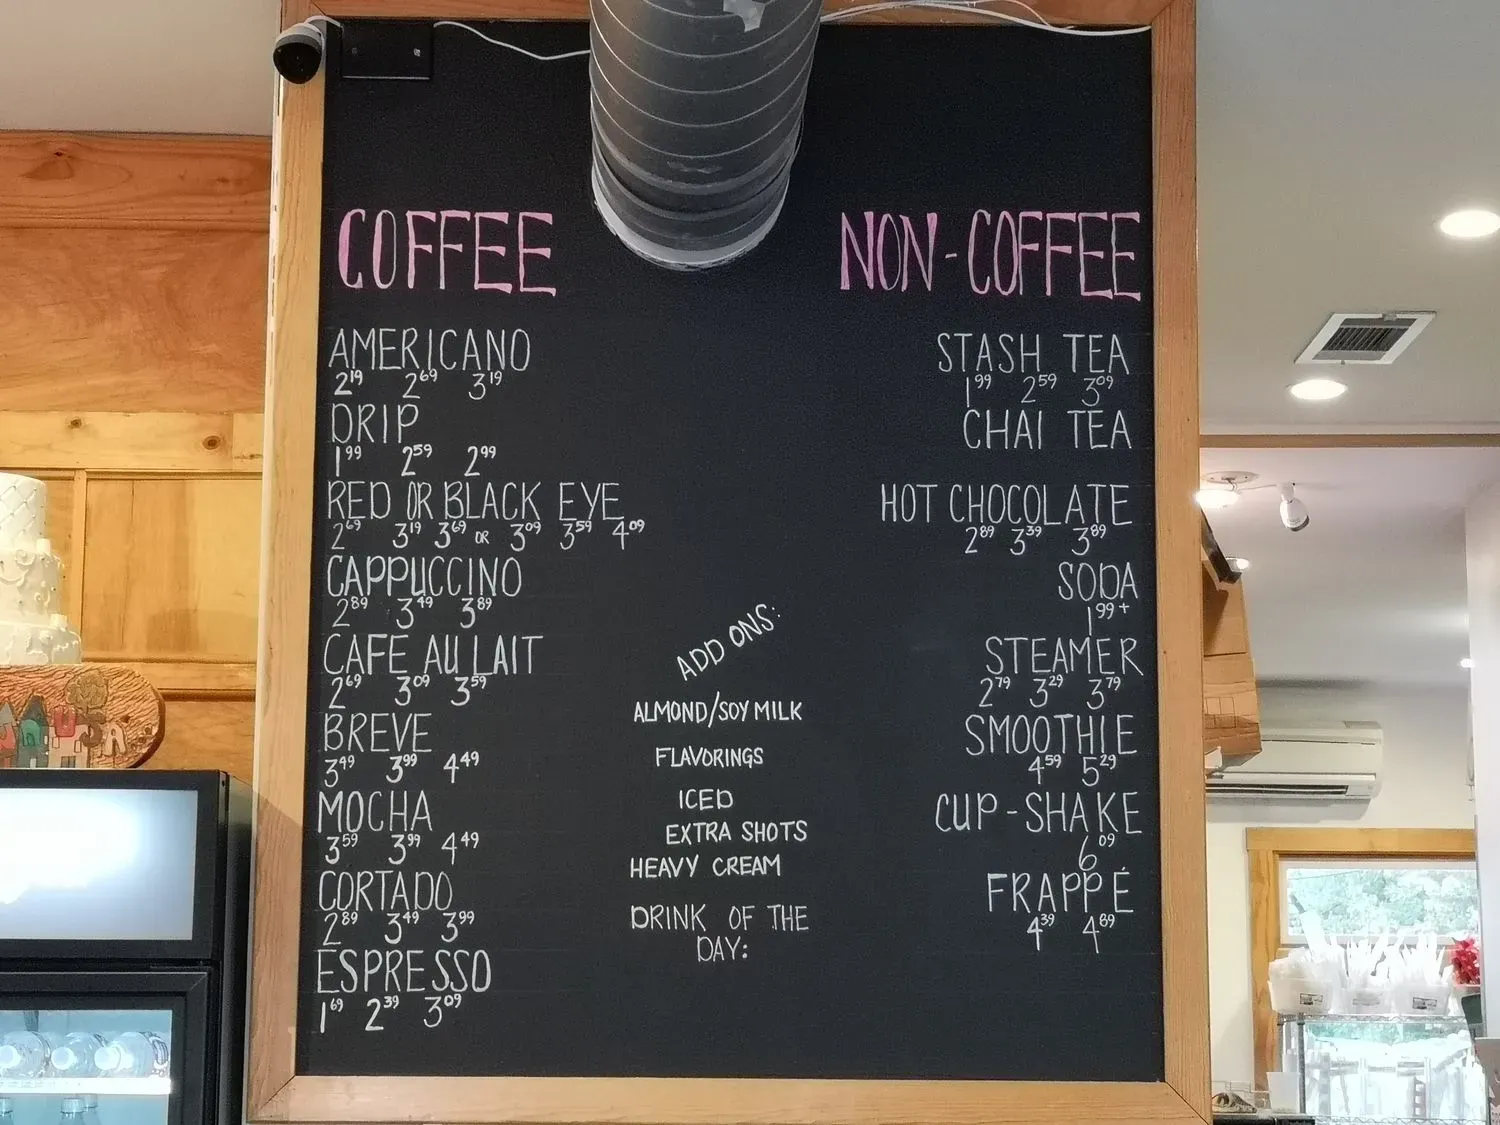 COFFEE
AMERICANO
2.19 2.69 3.19
DRIP
1.99 2.59 2.99
RED OR BLACK EYE
2.69 3.19 3.69 OR 3.09 3.59 4.09
CAPPUCCINO
2.89 3.49 3.89
CAFE AU LAIT
2.69 3.09 3.59
BREVE
3.49 3.99 4.49
MOCHA
3.59 3.99 4.49
CORTADO
2.89 3.49 3.99
ESPRESSO
1.69 2.39 3.09
ADD ONS:
ALMOND/SOY MILK
FLAVORINGS
ICED
EXTRA SHOTS
HEAVY CREAM
DRINK OF THE
DAY:
NON-COFFEE
STASH TEA
1.99 2.59 3.09
CHAI TEA
HOT CHOCOLATE
2.89 3.39 3.89
SODA
1.99+
STEAMER
2.79 3.29 3.79
SMOOTHIE
4.59 5.29
CUP-SHAKE
6.09
FRAPPÉ
4.39 4.89